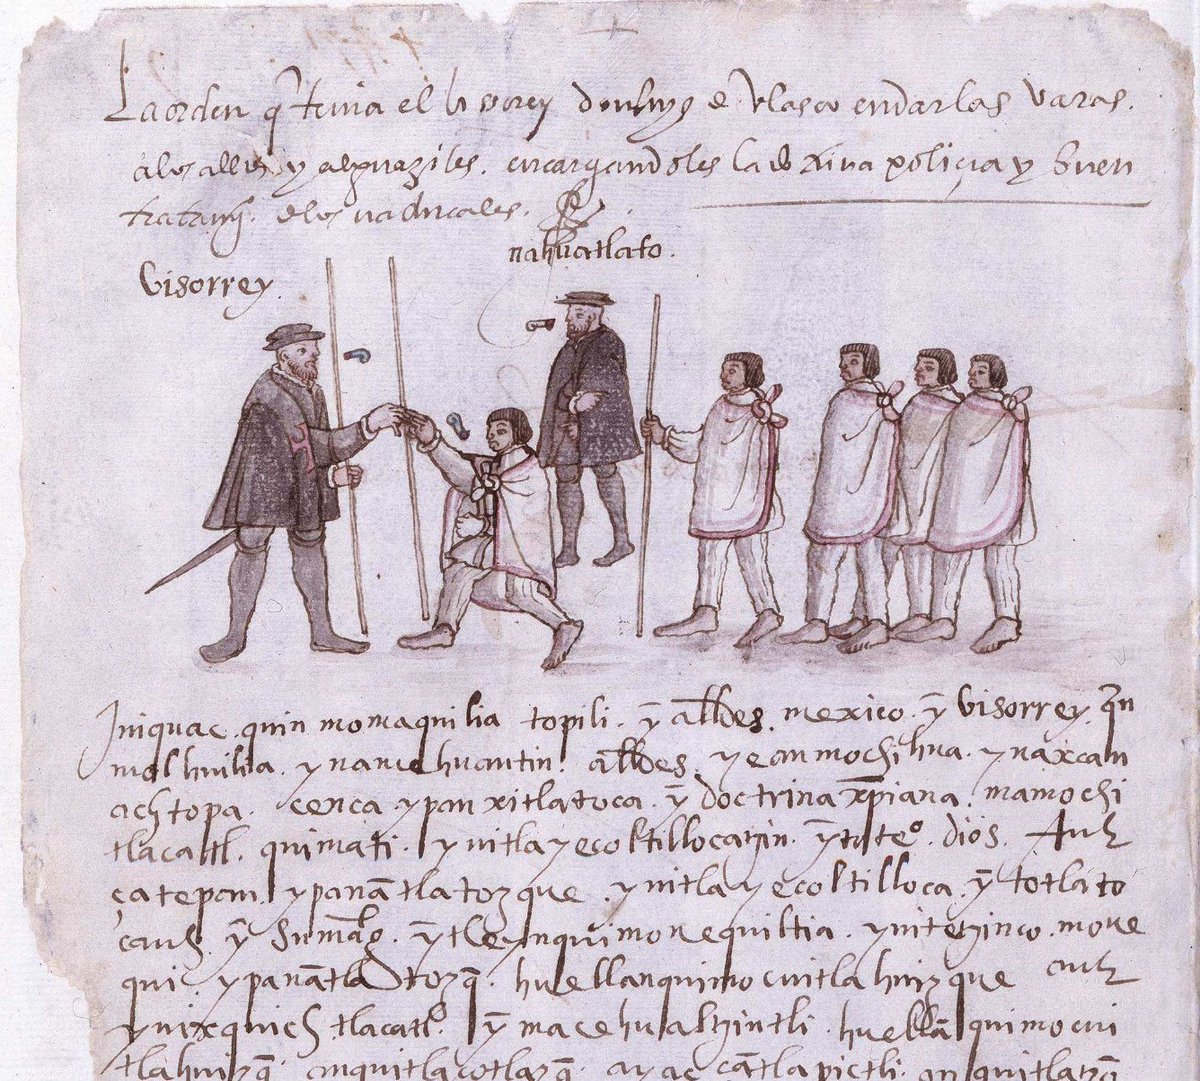 La orden q̄ tenia el bisorrey don luys de vlasco en dar las varas.
a los alldes y alguaziles. encargandoles la doxṙina policia y buen
tratamyº. de los naturales.
nahuatlato.
Visorrey.
Iniquac. quin momaquilia topili. yn̄ allōes. mexico. yn̄ Visorrey. qn
mol huilia. ynamehuantin. allōes. ye anmochihua. ynaxcan
achtopa. cenca ypan xitlatoca. yn̄ doctrina xp̄iana. ma mochi
tlacatl. quimati. ynitlayecoltillocatzin. yn̄ totecº. dios. Auh
çatepan. ypan ātlatozque ynitlayecoltilloca. yn̄ totlato
cauh. yn̄ su magᵈ. yn̄ tleyn quimonequiltia. ynitetzinco. mone
qui. ypan ātla tozq̄. huellanquimocuitlahuizque auh
ynixquich tlacatl. yn̄ macehualtzintli. huellā quimocui
tlahuizq̄. anquitlaçotlazq̄. ayac çātlapictli. anquitlatzō